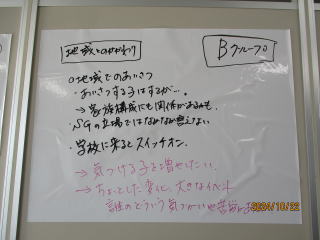 地域とのかかわり
Bグループ
○地域でのあいさつ
・あいさつする子はするが…。
→家族構成にも関係があるかも。
・SGの立場ではなかなか言えない
・学校に来るとスイッチオン。
→気づける子を増やしたい。
→ちょっとした変化、大きなイベント
誰のどういう気づかいや苦労が
2024/10/22